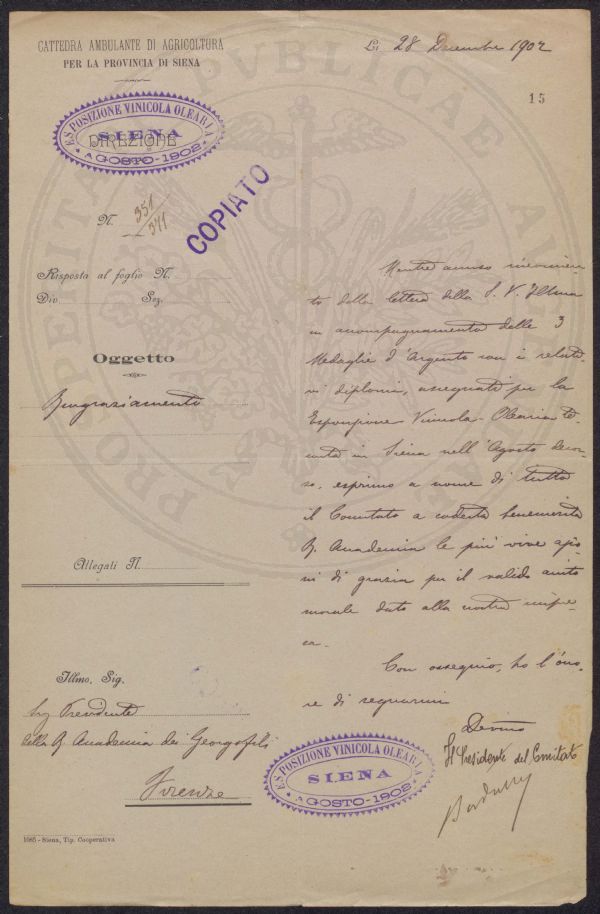 CATTEDRA AMBULANTE DI AGRICOLTURA
PER LA PROVINCIA DI SIENA
Li 28 Dicembre 1902
15
ESPOSIZIONE VINICOLA OLEARIA
DIREZIONE
SIENA
AGOSTO-1902
N. 351/371
COPIATO
Risposta al foglio N.
Div. Sez.
Oggetto
Ringraziamento
Allegati N.
Illmo. Sig.
Sig Presidente
della R Accademia dei Georgofili
Firenze
1085 - Siena, Tip. Cooperativa
Mentre accuso ricevimen-
to della lettera della S. V. Illma
in accompagnamento delle 3
Medaglie d'Argento con i relati-
vi diplomi, assegnati per la
Esposizione Vinicola-Olearia te-
nuta in Siena nell'Agosto decor-
so, esprimo a nome di tutto
il Comitato a codesta benemerita
R. Accademia le più vive azio-
ni di grazia per il valido aiuto
morale dato alla nostra impre-
sa.
Con ossequio, ho l'ono-
re di segnarmi
Devmo
Il Presidente del Comitato
ESPOSIZIONE VINICOLA OLEARIA
SIENA
AGOSTO-1902
PROSPERITATI PVBLICAE AV